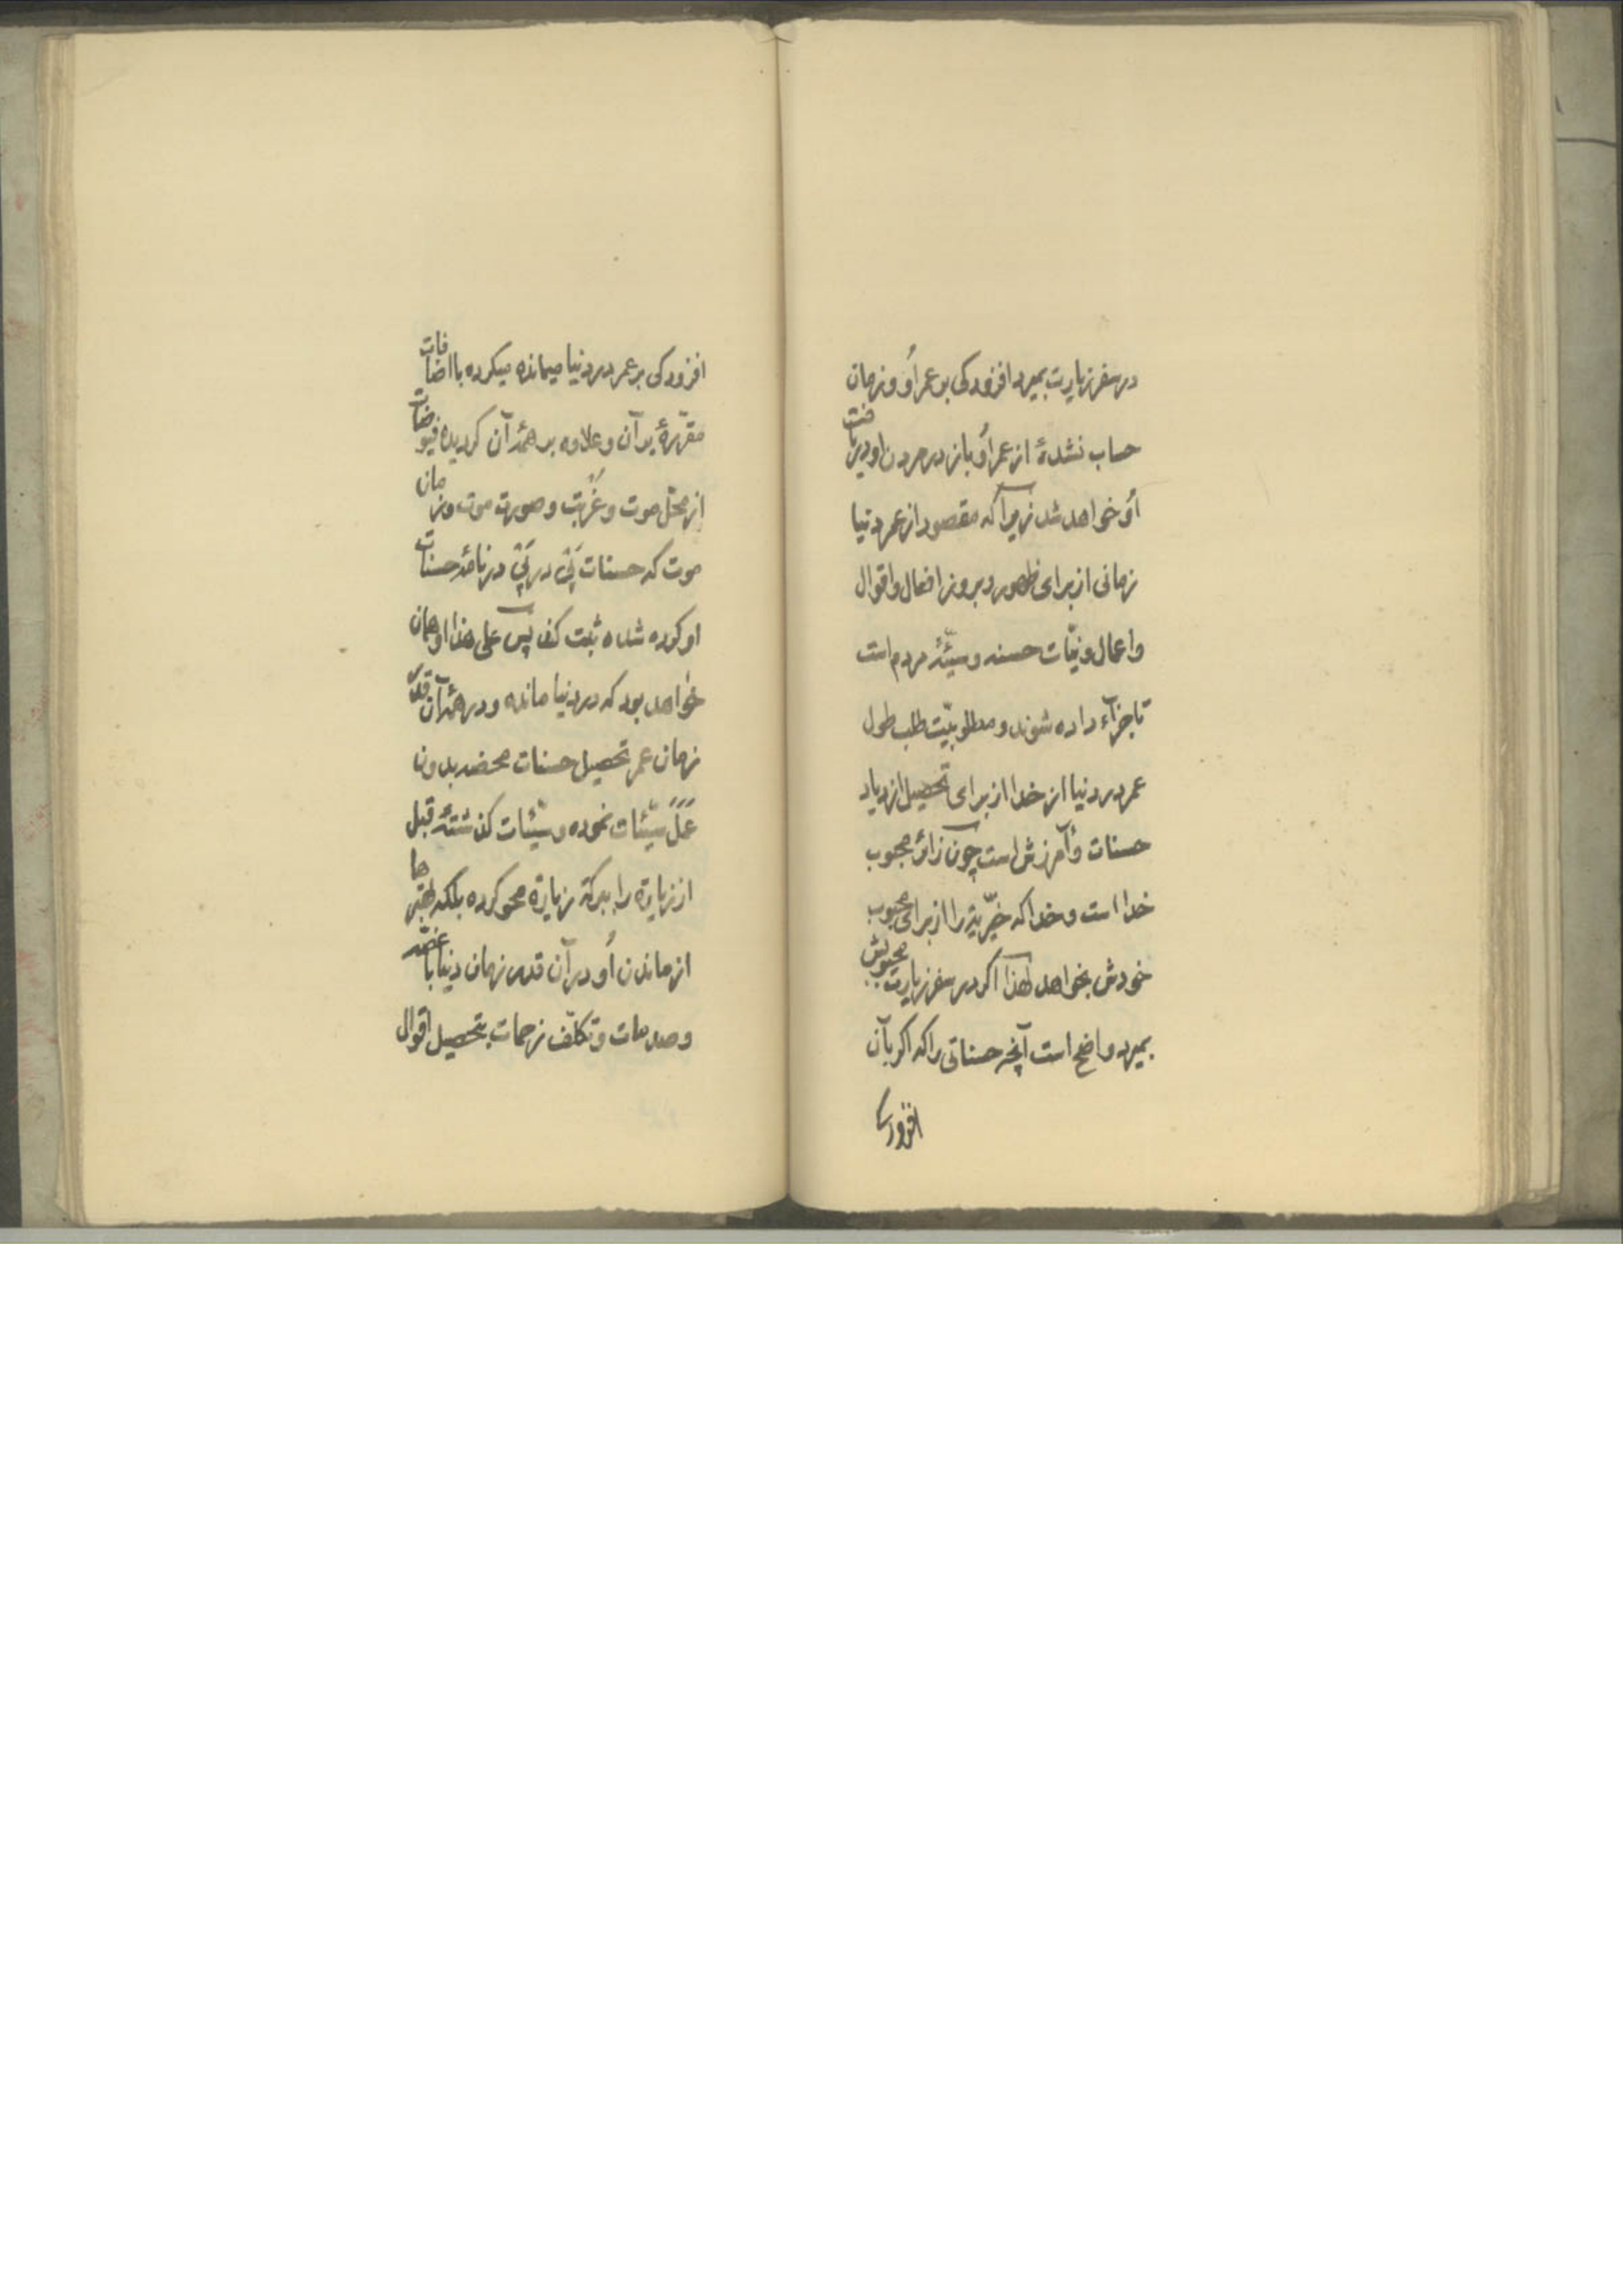 در سفر زیارت بمیرد افزودکی بر عمر اُو و زمان
حساب نشدهٔ از عمر اُو باز در مردن او دریافت
اُو خواهد شد زیرا که مقصود از عمر دنیا
زمانی از برای ظهور و بروز افعال و اقوال
و اعمال و نیّات حسنه و سیّئهٔ مردم است
تا جزآء داده شوند و مطلوبیّت طلب طول
عمر در دنیا از خدا از برای تحصیل ازدیاد
حسنات و آمرزش است چون زائر محبوب
خدا است و خدا که خیّریّة را از برای محبوب
خودش بخواهد لهذا اکر در سفر زیارت محبوبش
بمیرد واضح است آنچه حسناتی را که اکر بآن
افزودکی
افزودکی بر عمر در دنیا میمانده میکرده با اضافات
مقرّرهٔ بر آن و علاوه بر همهٔ آن کردیده فیوضات
از محلّ موت و غُربَت و صورت موت و زمان
موت که حسنات پَیْ در پَیْ در نامهٔ حسنات
او کرده شده ثبت کند پس علی هذا او همان
خواهد بود که در دنیا مانده و در همهٔ آن قدر
زمان عمر تحصیل حسنات محضه بدون
عمل سیّئات نموده و سیّئات کذشتهٔ قبل
از زیارة را ببرکة زیارة محو کرده بلکه بهتر ها
از ماندن اُو در آن قدر زمان دنیا با غصّه
و صدمات و تکلّف زحمات بتحصیل اقوال